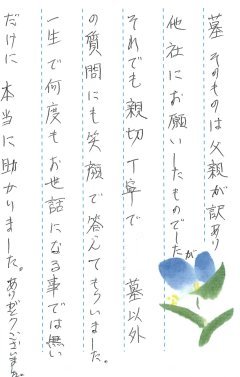 墓そのものは父親が訳あり
他社にお願いしたものでしたが
それでも親切丁寧で 墓以外
の質問にも笑顔で答えてもらいました。
一生で何度もお世話になる事では無い
だけに 本当に助かりました。ありがとうございました。